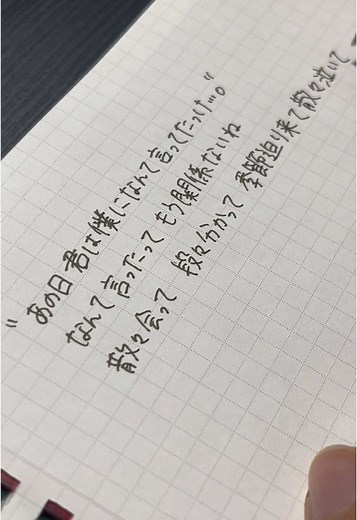 "あの日 君は僕になんて言ってたっけ…。"
なんて言ったって もう関係ないね
散々会って 段々分かって 季節迫り来て 散々泣いて